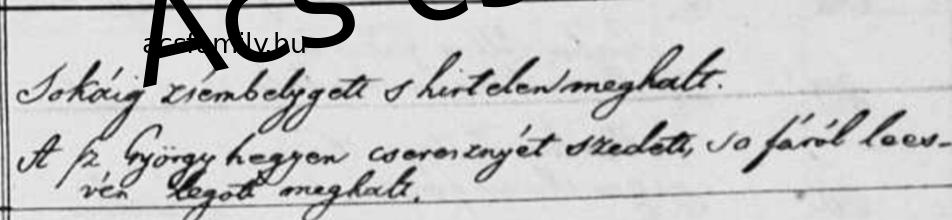 Ács cs
acsfamily.hu
Sokáig zsémbelygett s hirtelen meghalt.
A sz György hegyen cseresznyét szedett, s a fáról lees-
vén legott meghalt.